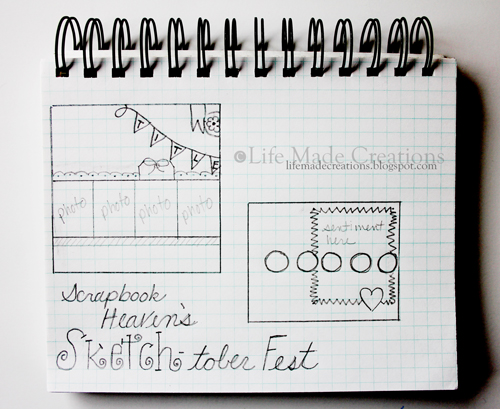 TITLE
©Life Made Creations
lifemadecreations.blogspot.com
photo photo photo photo
sentiment
here
Scrapbook
Heaven's
Sketch-tober Fest